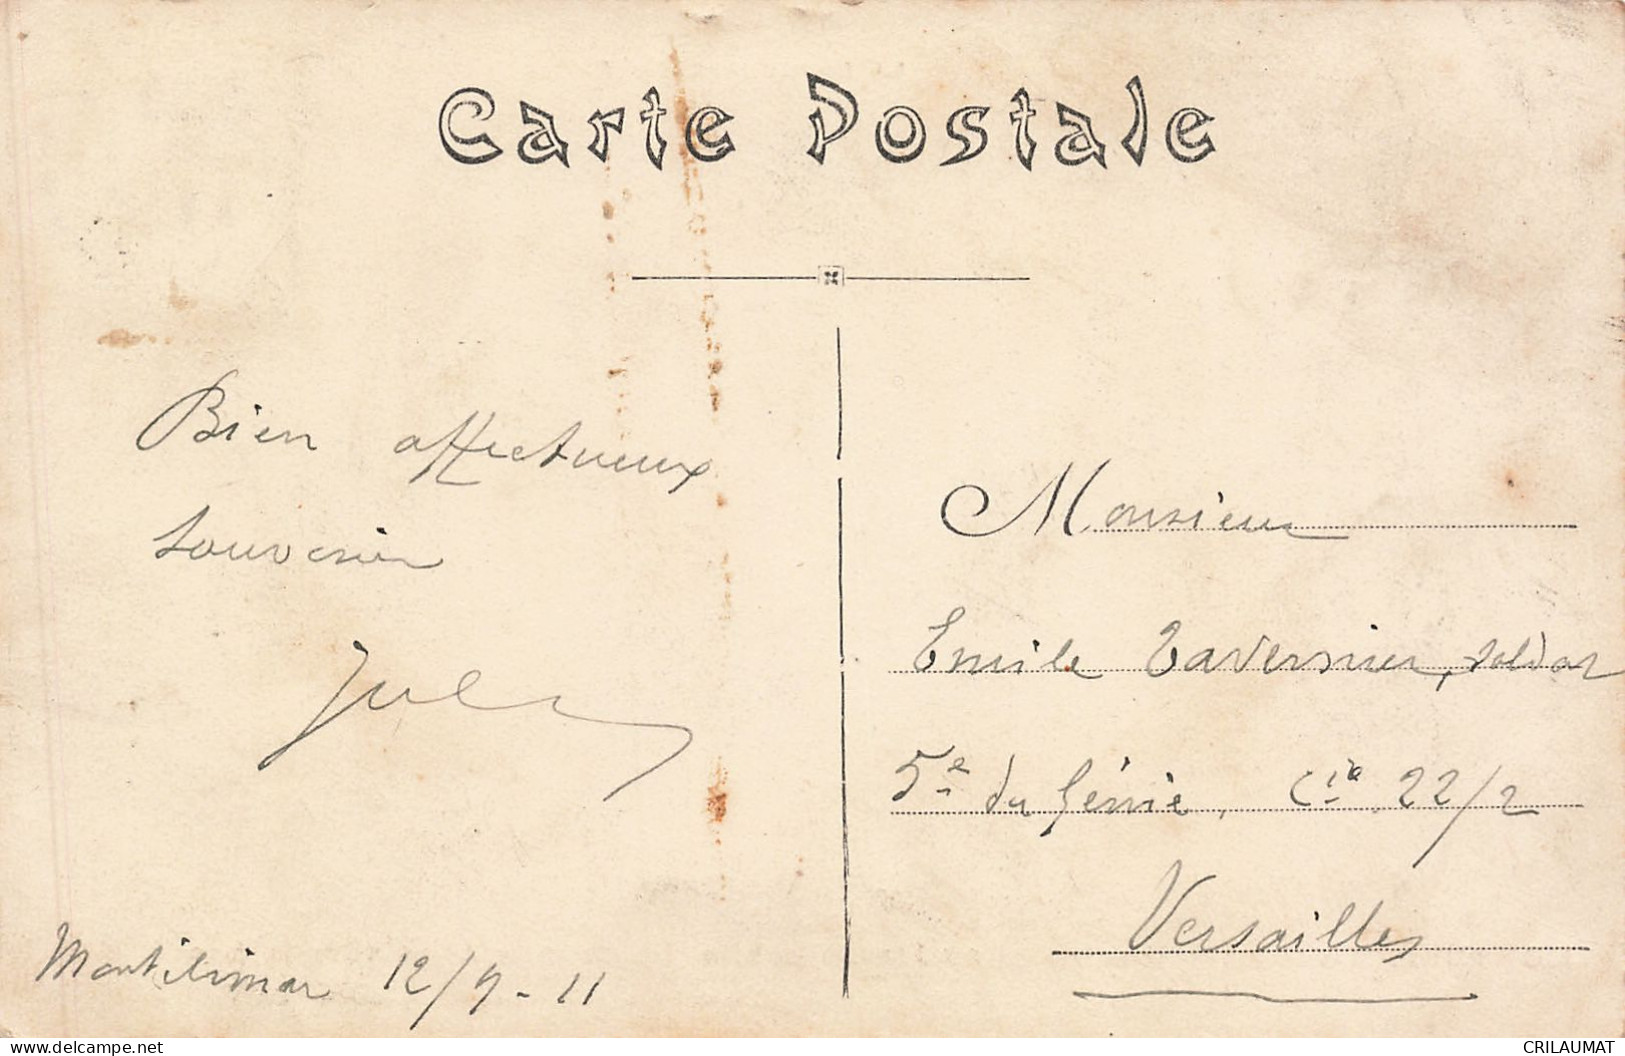 Carte Postale
Bien affectueux
souvenir
Jules
Montilimar 12/9-11
Monsieur
Emile Tavernier, soldat
5e du Génie, Cie 22/2
Versailles
www.delcampe.net
CRILAUMAT